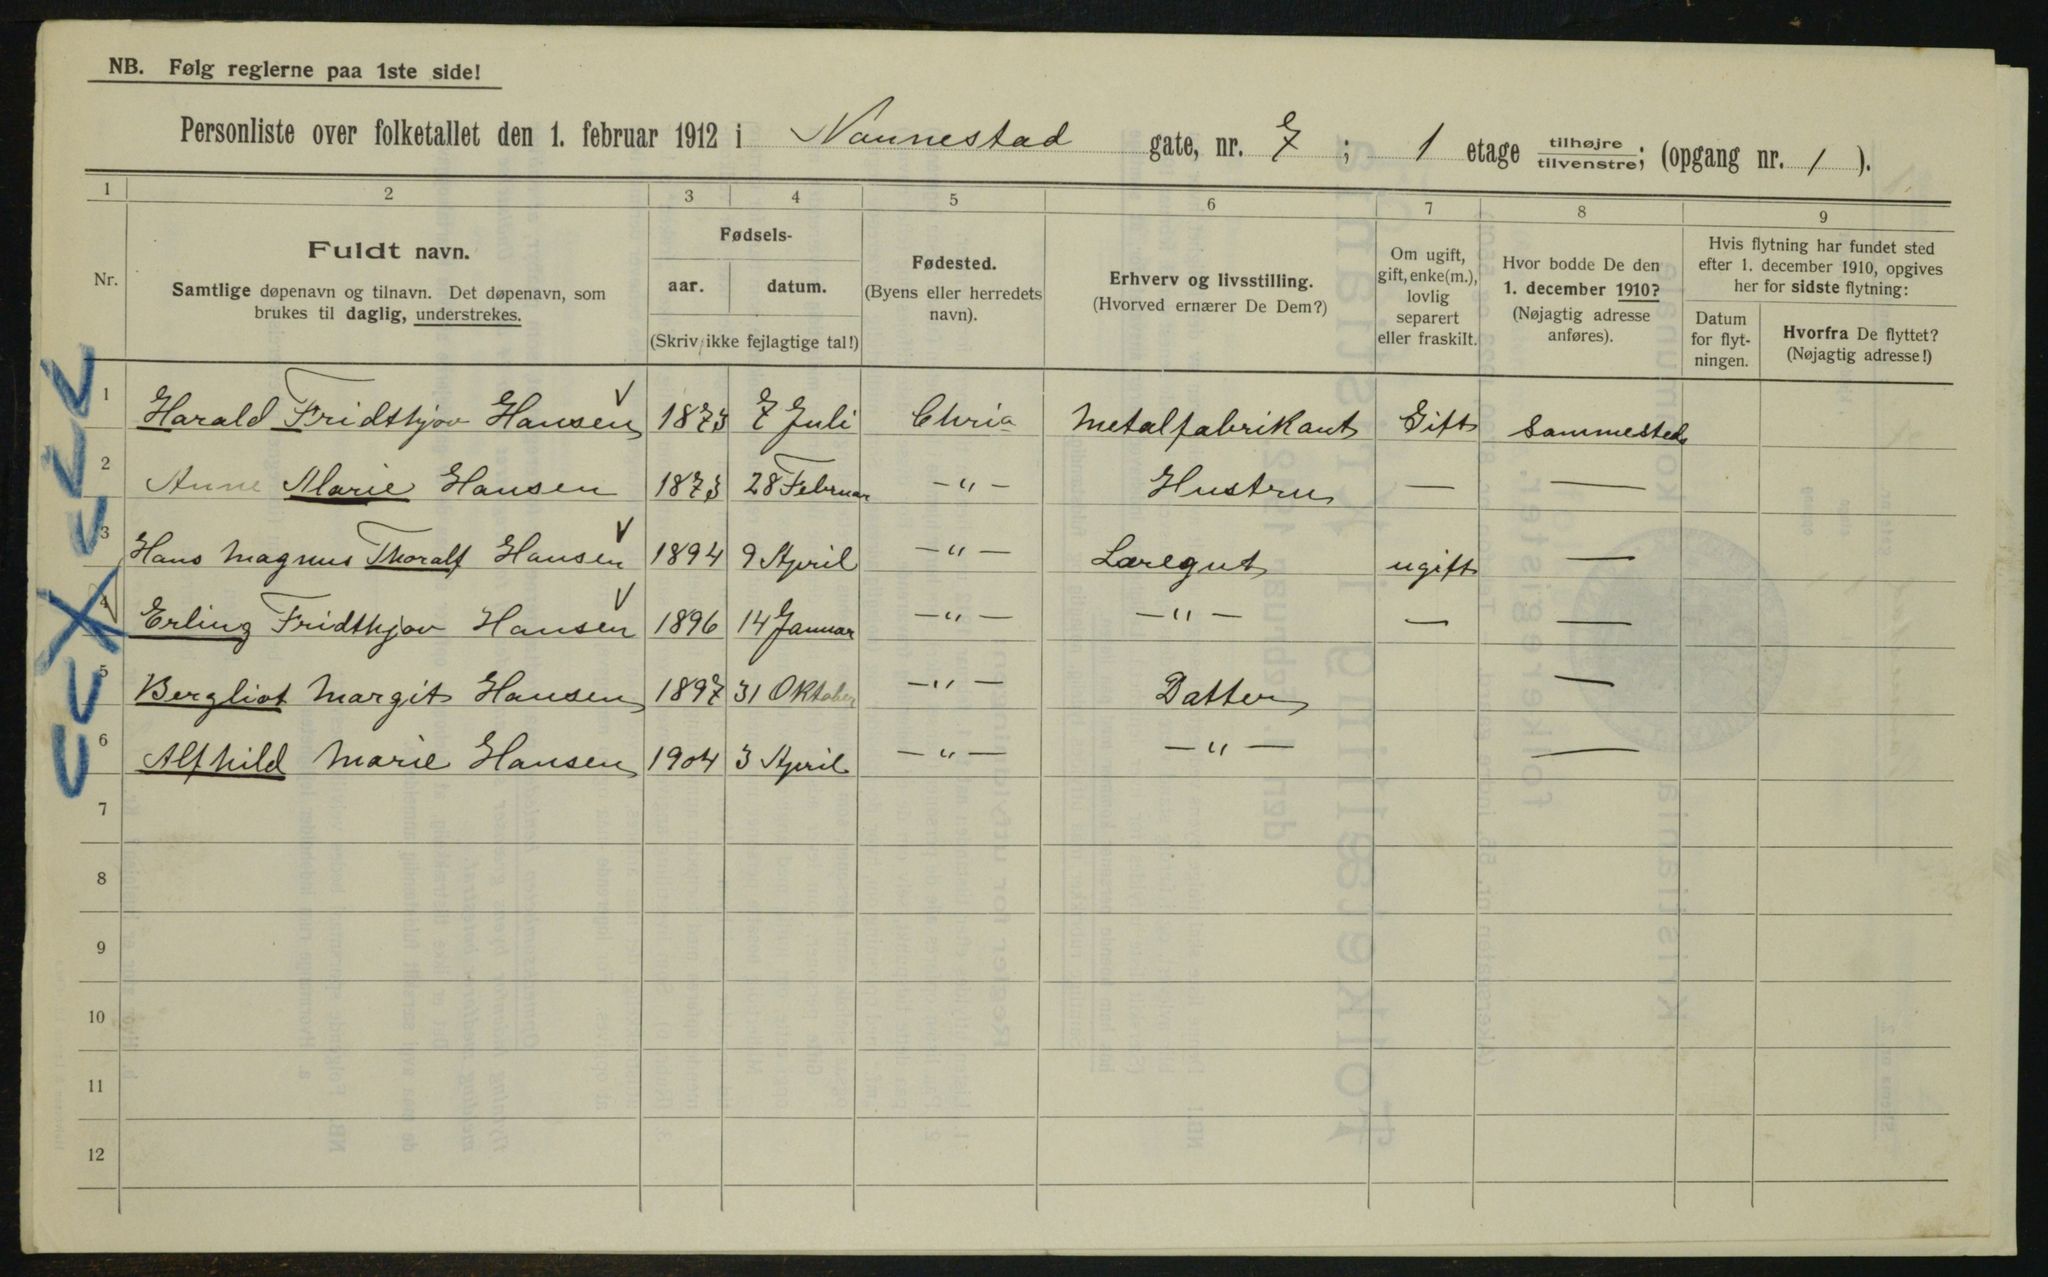 NB. Følg reglerne paa 1ste side!
Personliste over folketallet den 1. februar 1912 i Nannestad gate, nr. 7; 1 etage tilhøjre tilvenstre; (opgang nr. 1).
1 2 3 4 5 6 7 8 9
Nr.
Fuldt navn.
Samtlige døpenavn og tilnavn. Det døpenavn, som
brukes til daglig, understrekes.
Fødsels-
aar. datum.
(Skriv ikke fejlagtige tal!)
Fødested.
(Byens eller herredets
navn).
Erhverv og livsstilling.
(Hvorved ernærer De Dem?)
Om ugift,
gift, enke(m.),
lovlig
separert
eller fraskilt.
Hvor bodde De den
1. december 1910?
(Nøjagtig adresse
anføres).
Hvis flytning har fundet sted
efter 1. december 1910, opgives
her for sidste flytning:
Datum
for flyt-
ningen.
Hvorfra De flyttet?
(Nøjagtig adresse!)
1 Harald Fridthjov Hansen 1873 7 Juli Chria Metalfabrikant Gift Sammesteds
2 Anne Marie Hansen 1873 28 Februar —"— Hustru — —
3 Hans Magnus Thoralf Hansen 1894 9 April —"— Læregut ugift —
4 Erling Fridthjov Hansen 1896 14 Januar —"— —"— — —
5 Bergliot Margit Hansen 1897 31 Oktober —"— Datter —
6 Alfhild Marie Hansen 1904 3 April —"— —"— —
7
8
9
10
11
12